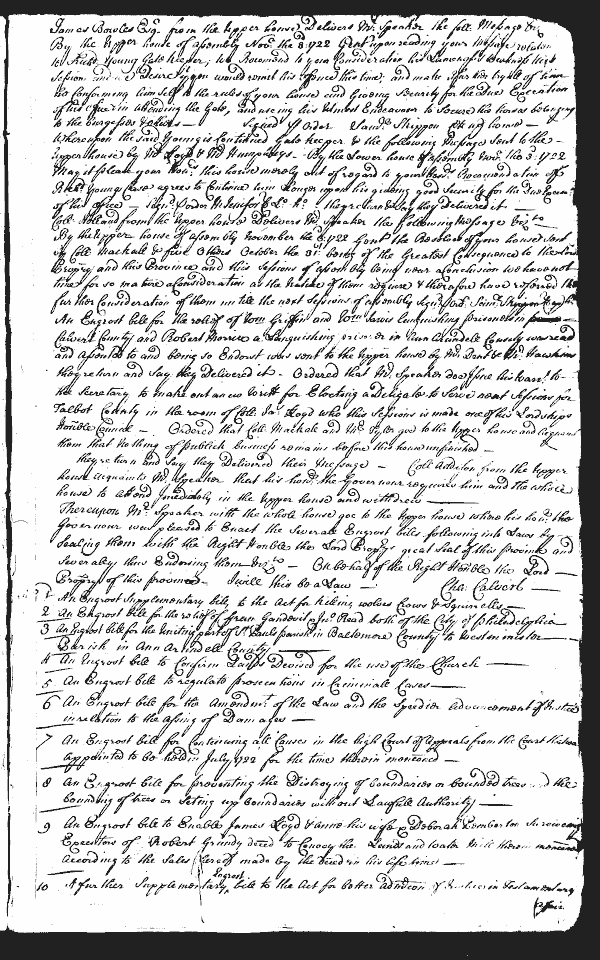 James Bowles Esqr. from the upper house Delivers Mr. Speaker the foll. Message Vizt.
By the Upper house of Assembly Novr. the 3. 1722 Gent. upon reading your Message relation
to Richd. Young Gate keeper, we Recomend to your Consideration his
Session and Desire you would remit his offence this time, and make
his Conforming himself to the rules of your house and Giving Security for the Due Execution
of his Office in attending the Gate, and using his utmost Endeavour to Secure the horses belonging
to the Burgesses & others — Signed p Order Saml. Skippon Cl. up. house —
Whereupon the said Young is Continued Gate keeper & the following Message Sent to the
upper house by Mr. Loyd & Mr Humphreys — By the Lower house of Assembly Novr. the 3. 1722
May it please your Honrs. this house meerly out of regard to your honrs. Recomendation of
Richd. Young have agreed to Continue him longer upon his giving good Security for the Due Exam.
of his Office — Sign. p Order M Jenifer Cl. Lo. H. they return & Say they Delivered it —
Coll. Holland from the upper house Delivers Mr. Speaker the following Message Vizt.
By the upper house of Assembly November the 3. 1722 Gent. the Resolves of your house Sent
by Coll. Mackall & five Others October the 31. being of the Greatest Consequence to the Lord
Propry and this Province and this Sessions of Assembly being near a conclusion we have not
time for so mature a Consideration as the Nature of them require & therefore have referred the
further Consideration of them untill the next Sessions of Assembly Sign. p Ord. Saml. Skippon
An Engrost bill for the relief of Tom Griffin and Tom Jarvis Languishing prisoners in
Calvert County and Robert Morrice a Languishing prisoner in Ann Arundell County was read
and assented to and being so Endorst was sent to the upper house by Mr. Dent & Mr. Hawkins
they return and Say they Delivered it — Ordered that Mr. Speaker doe Issue his warrt. to
the Secretary to make out a new Writt for Electing a Delegate to Serve next Sessions for
Talbot County in the room of Coll. Ja. Lloyd who this Sessions is made one of his Lordships
honble Council — Ordered that Coll. Mackall and Mr. Tyler goe to the upper house and acquaint
them that nothing of publick business remains before this house unfinished —
they return and Say they Delivered their Message — Coll Addison from the upper
house acquaints Mr. Speaker that his honr. the Governour requires him and the whole
house to attend Imediately in the upper house and withdrew —
Thereupon Mr. Speaker with the whole house goe to the upper house where his honr. the
Governour was pleased to Enact the Severale Engrost bills following into Laws by
Sealing them with the Right Honble the Lord Proprys. great Seal of this province and
Severally thus Endorsing them Vizt. — On behalf of the Right Honble the Lord
Propry of this province I will this be a Law — Cha: Calvert —
1 An Engrost Supplementary bill, to the Act for killing wolves Crows & Squirrells
2 An Engrost bill for the relief of fran Gandovil & Jos. Read both of the City of philadelphia
3 An Engrost bill for the Uniting part of St. Pauls parish in Baltemore County to Westminster
Parish in Ann Arundell County —
4 An Engrost bill to Confirm Lands Devised for the use of the Church —
5 An Engrost bill to regulate prosecutions in Criminale Cases —
6 An Engrost bill for the Amendmt. of the Law and the Speedier Advancement of Justice
in relation to the assing of Damages —
7 An Engrost bill for Continuing all Causes in the high Court of Appeals from the Court that was
appointed to be held in July 1722 for the time therein menconed —
8 An Engrost bill for preventing the Distroying of boundaries or bounded trees and the
bounding of trees or Setting up boundaries without Lawfull Authority —
9 An Engrost bill to Enable James Loyd & Anne his wife & Deborah Pemberton Surviving
Executors of Robert Grundy deced to Convey the Lands and Water Mill therein menconed
according to the Sales thereof made by the deced in his lifetime —
Engrost
10 A further Supplementary bill to the Act for better admicon of Justice in Testamentary
Affair